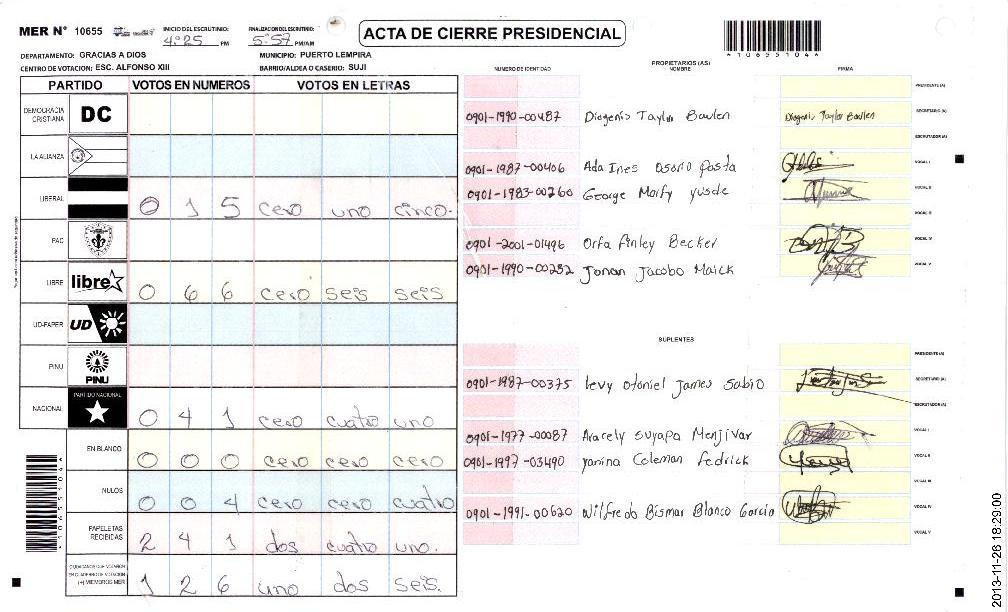 MER Nº 10655
INICIO DEL ESCRUTINIO: 4:25 PM
FINALIZACION DEL ESCRUTINIO: 5:57 PM/AM
ACTA DE CIERRE PRESIDENCIAL
*106551044*
DEPARTAMENTO: GRACIAS A DIOS
MUNICIPIO: PUERTO LEMPIRA
CENTRO DE VOTACION: ESC. ALFONSO XIII
BARRIO/ALDEA O CASERIO: SUJI
PARTIDO VOTOS EN NUMEROS VOTOS EN LETRAS
DEMOCRACIA CRISTIANA DC
LA ALIANZA
LIBERAL 0 1 5 cero uno cinco.
PAC
LIBRE libre 0 6 6 cero seis seis
UD-FAPER UD
PINU PINU
NACIONAL PARTIDO NACIONAL 0 4 1 cero cuatro uno
EN BLANCO 0 0 0 cero cero cero
NULOS 0 0 4 cero cero cuatro
PAPELETAS RECIBIDAS 2 4 1 dos cuatro uno.
CIUDADANOS QUE VOTARON EN CUADERNO DE VOTACION (+) MIEMBROS MER 1 2 6 uno dos seis.
PROPIETARIOS (AS)
NUMERO DE IDENTIDAD NOMBRE FIRMA
PRESIDENTE (A)
0901-1990-00487 Diogenis Taylor Boulen Diogenis Taylor Boulen SECRETARIO (A)
ESCRUTADOR (A)
0901-1987-00406 Ada Ines Osorio Posta VOCAL I
0901-1983-00260 George Morfy yusde VOCAL II
VOCAL III
0901-2001-01496 Orfa Finley Becker VOCAL IV
0901-1990-00252 Jonan Jacobo Maick VOCAL V
SUPLENTES
PRESIDENTE (A)
0901-1987-00375 levy otoniel james sabio SECRETARIO (A)
ESCRUTADOR (A)
0901-1977-00087 Aracely suyapa Menjivar VOCAL I
0901-1997-03490 yanina Coleman Fedrick VOCAL II
VOCAL III
0901-1991-00620 Wilfredo Bismar Blanco Garcia VOCAL IV
VOCAL V
2013-11-26 18:29:00